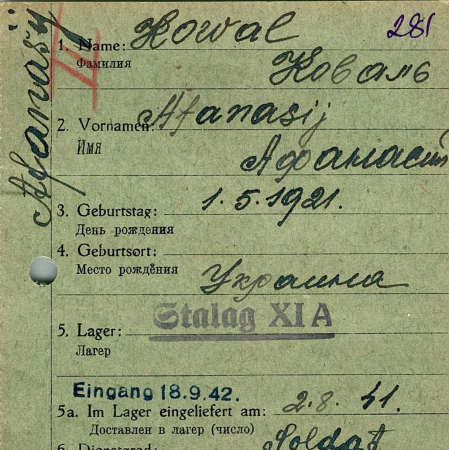 281
1. Name: Kowal
Фамилия
Коваль
Afanasij
2. Vornamen: Afanasij
Имя
Афанасий
3. Geburtstag: 1.5.1921.
День рождения
4. Geburtsort:
Место рождёния
Украина
Stalag XI A
5. Lager:
Лагер
Eingang 18.9.42.
5a. Im Lager eingeliefert am: 2.8.41.
Доставлен в лагер (число)
6. Dienstgrad: Soldat